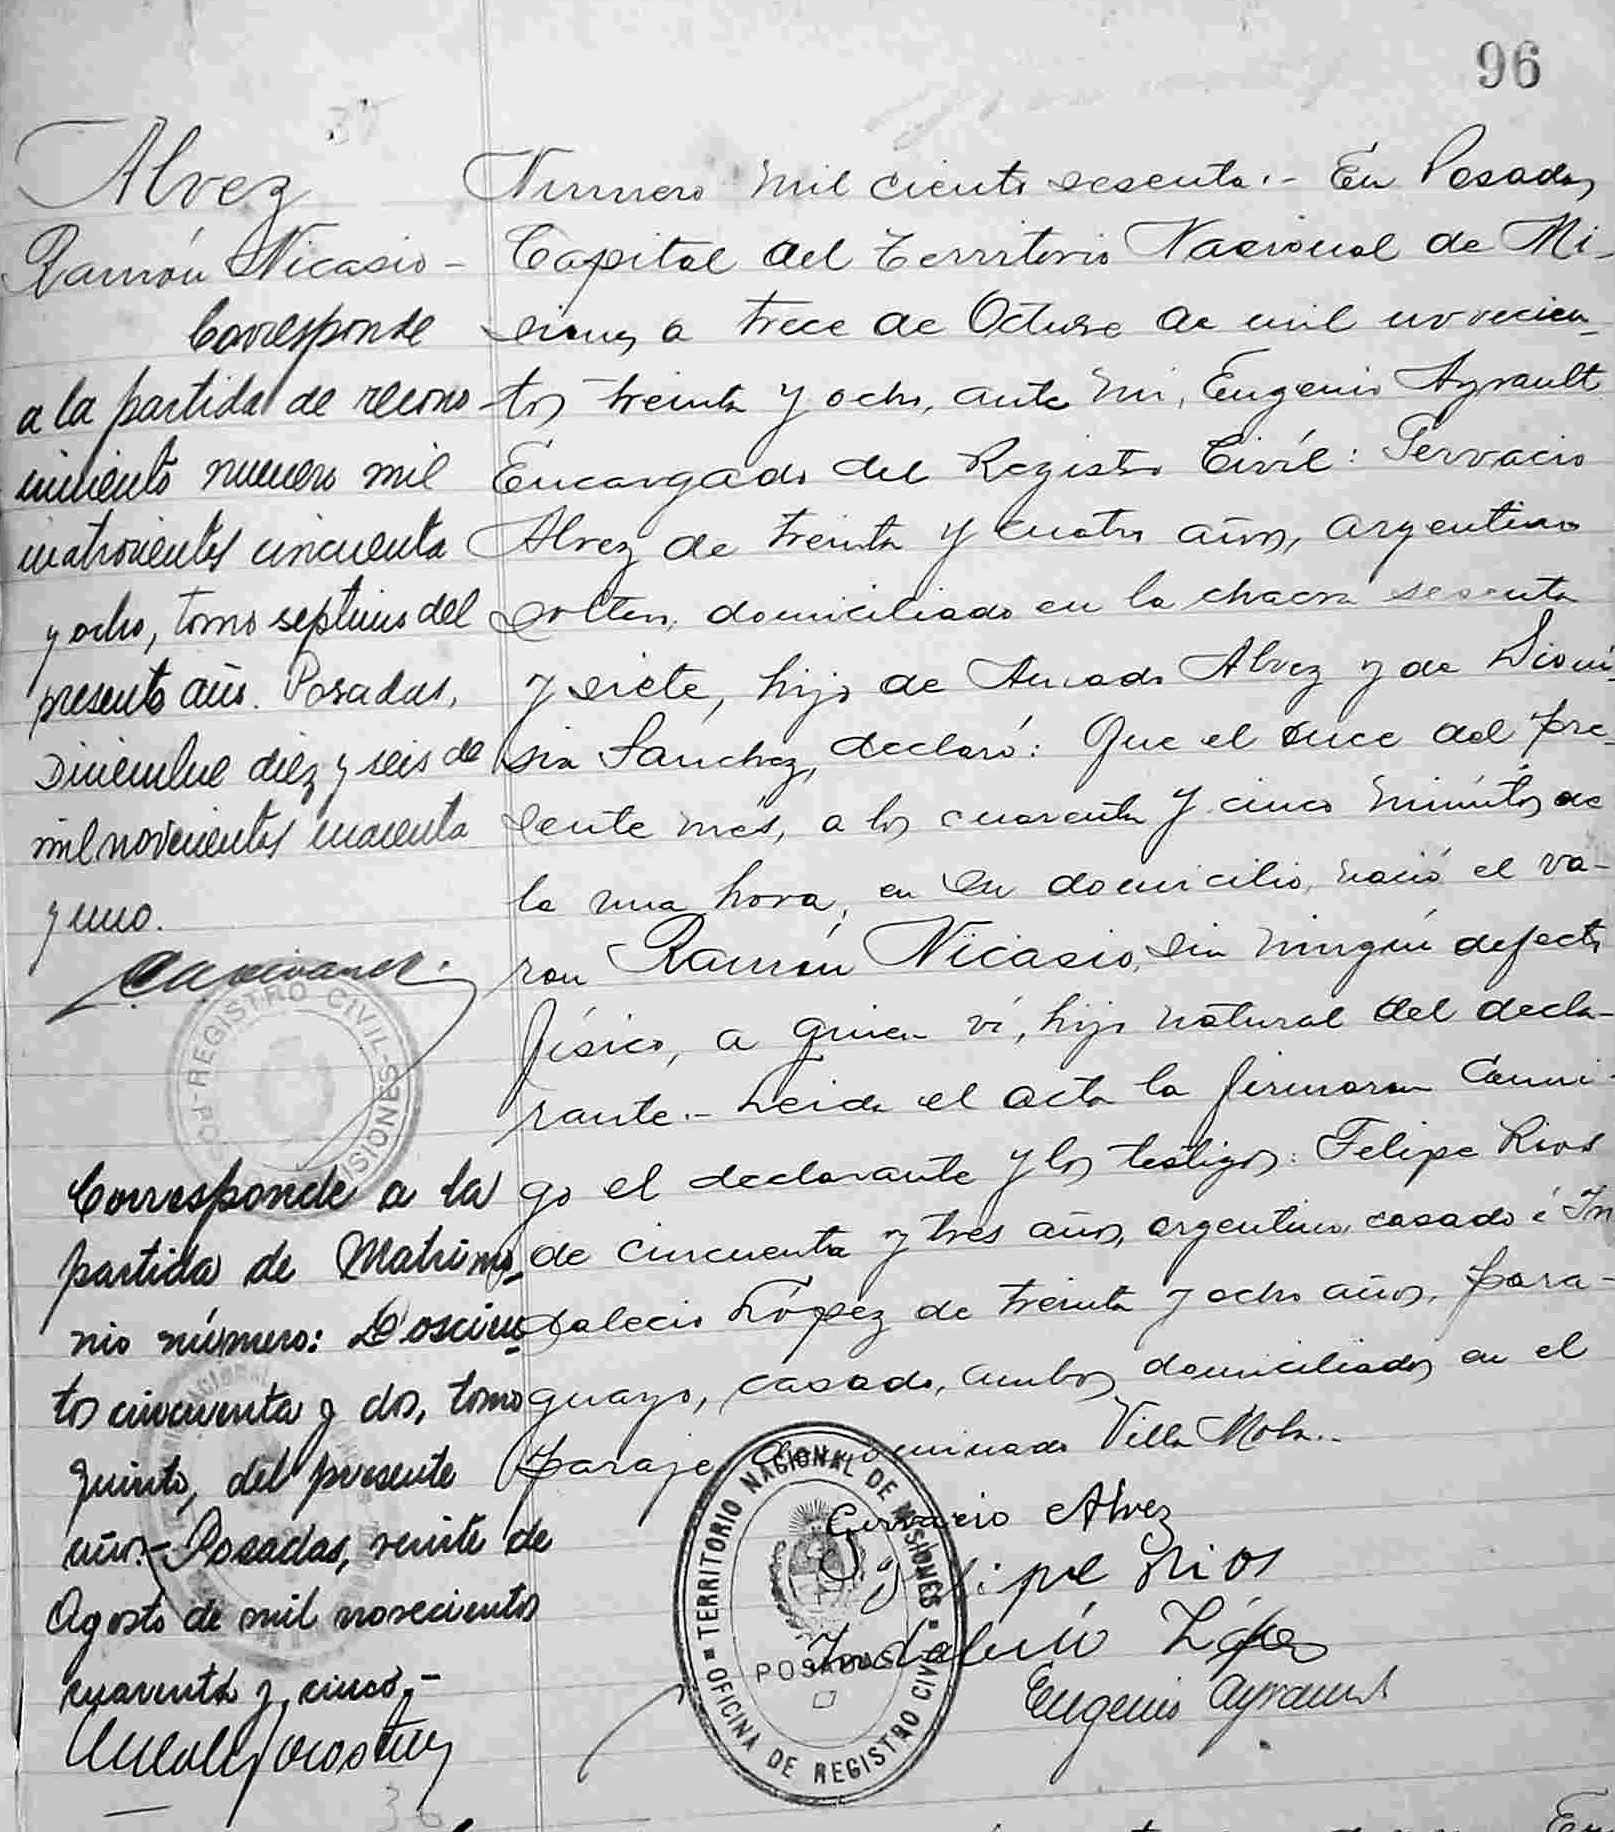 96
Alvez
Ramón Nicasio -
Corresponde
a la partida de recono
cimiento numero mil
cuatrocientos cincuenta
y ocho, tomo septimo del
presente año. Posadas,
Diciembre diez y seis de
mil novecientos cuarenta
y uno.
POS-REGISTRO CIVIL-MISIONES
Corresponde a la
partida de Matrimo-
nio número: Doscien-
tos cincuenta y dos, tomo
quinto, del presente
año.- Posadas, veinte de
Agosto de mil novecientos
cuarenta y cinco.-
Numero mil ciento sesenta.- En Posadas
Capital del Territorio Nacional de Mi-
siones a trece de Octubre de mil novecien-
tos treinta y ocho, ante mi, Eugenio Ayrault
Encargado del Registro Civíl: Gervacio
Alvez de treinta y cuatro años, argentino
soltero, domiciliado en la chacra sesenta
y siete, hijo de Amado Alvez y de Dioni-
sia Sánchez, declaró: Que el once del pre-
sente més, a los cuarenta y cinco minutos de
la una hora, en su domicilio, nació el va-
ron Ramón Nicasio, sin ningún defecto
físico, a quien ví, hijo natural del decla-
rante.- Leida el acta la firmaron conmi-
go el declarante y los testigos: Felipe Rios
de cincuenta y tres años, argentino, casado é In
dalecio López de treinta y ocho años, para-
guayo, casado, ambos domiciliados en el
paraje denominado Villa Mola.-
Gervacio Alvez
Felipe Rios
Indalecio López
Eugenio Ayrault
TERRITORIO NACIONAL DE MISIONES
POSADAS
OFICINA DE REGISTRO CIVIL
36